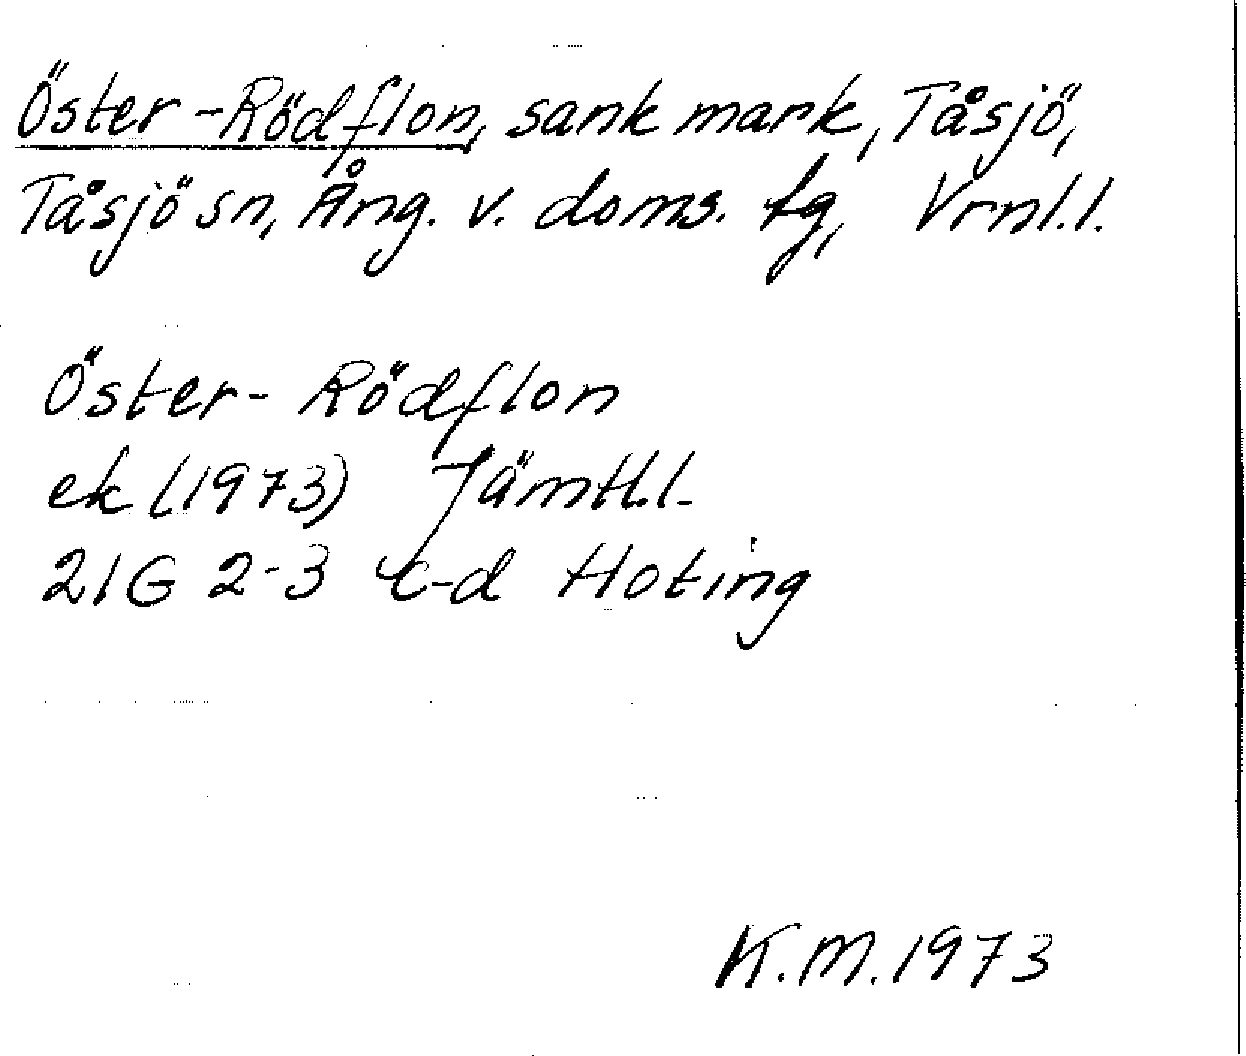 Öster-Rödflon, sank mark, Tåsjö,
Tåsjö sn, Ång. v. doms. fg, Vrnl.l.
Öster-Rödflon
ek (1973) Jämtl.l.
21G 2-3 c-d Hoting
K.M. 1973